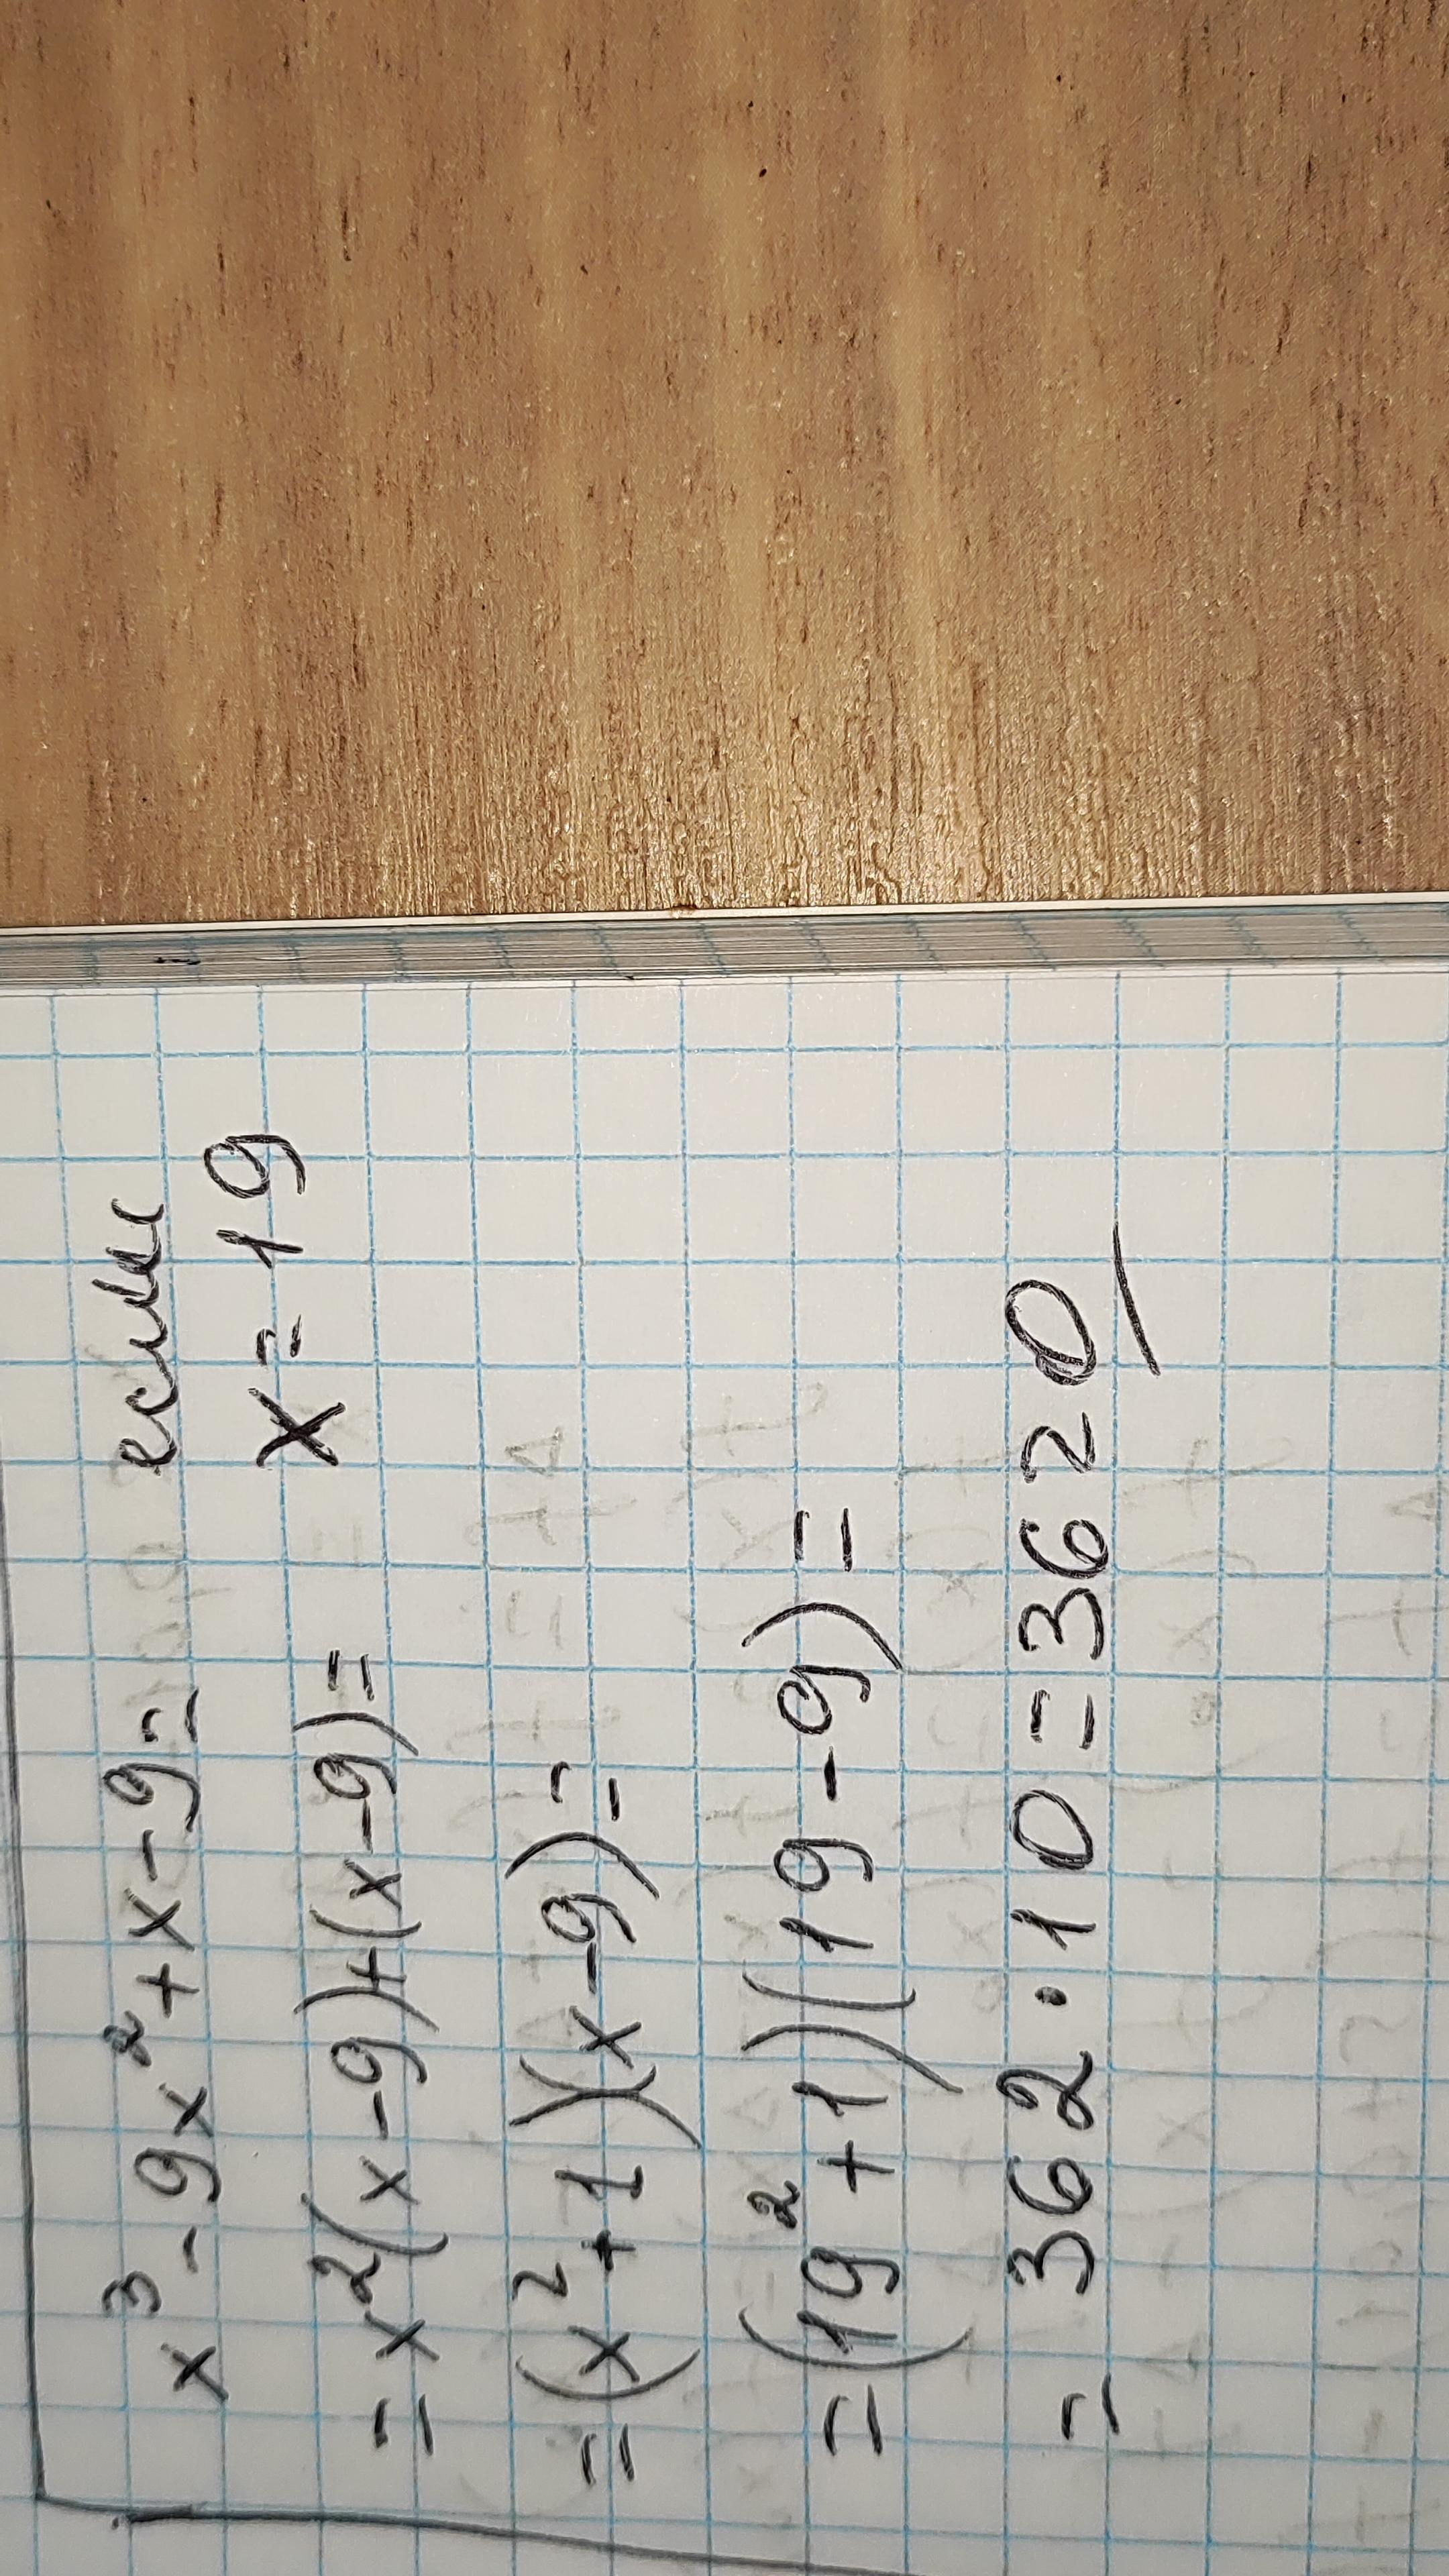 x³-9x²+x-9= если
x=19
=x²(x-9)+(x-9)=
=(x²+1)(x-9)=
=(19²+1)(19-9)=
=362·10=3620